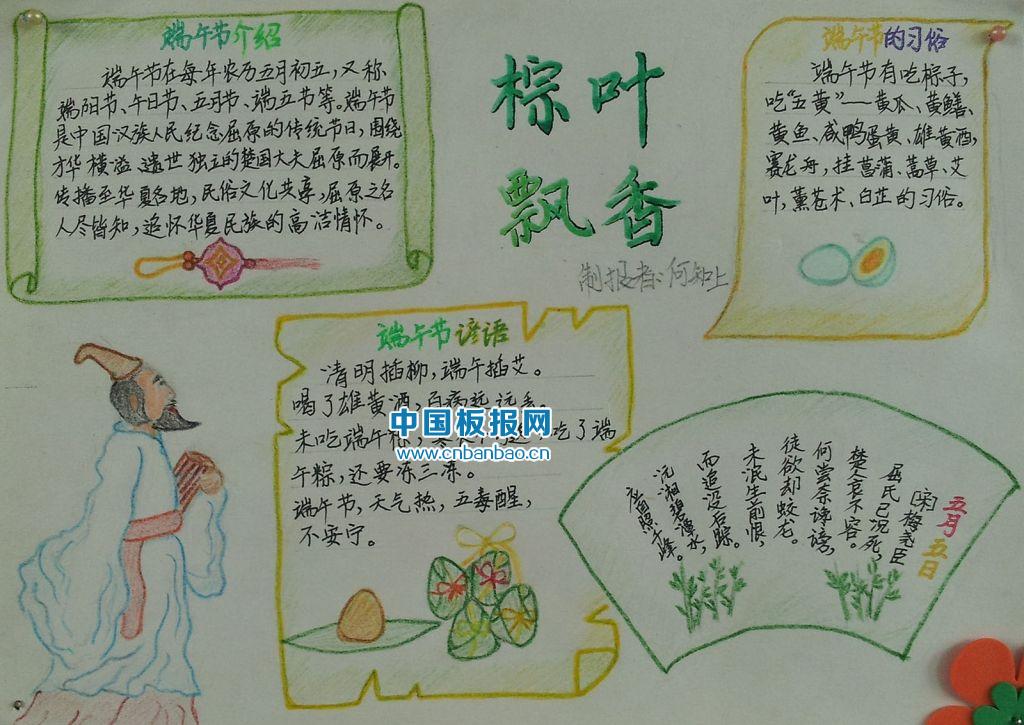 端午节介绍
端午节在每年农历五月初五,又称
端阳节、午日节、五月节、端五节等。端午节
是中国汉族人民纪念屈原的传统节日,围绕
才华横溢、遗世独立的楚国大夫屈原而展开。
传播至华夏各地,民俗文化共享,屈原之名
人尽皆知,追怀华夏民族的高洁情怀。
棕叶
飘香
制报者:何知上
端午节的习俗
端午节有吃棕子,
吃“五黄”——黄瓜、黄鳝、
黄鱼、咸鸭蛋黄、雄黄酒,
赛龙舟,挂菖蒲、蒿草、艾
叶,薰苍术、白芷的习俗。
端午节谚语
清明插柳,端午插艾。
喝了雄黄酒,百病远远
未吃端午
吃了端
午粽,还要冻三冻。
端午节,天气热,五毒醒,
不安宁。
中国板报网
www.cnbanbao.cn
五月五日
[宋]梅尧臣
屈氏已沉死,
楚人哀不容。
何尝奈谗谤,
徒欲却蛟龙。
未泯生前恨,
而追没后踪。
沅湘碧潭水,
应照千峰。